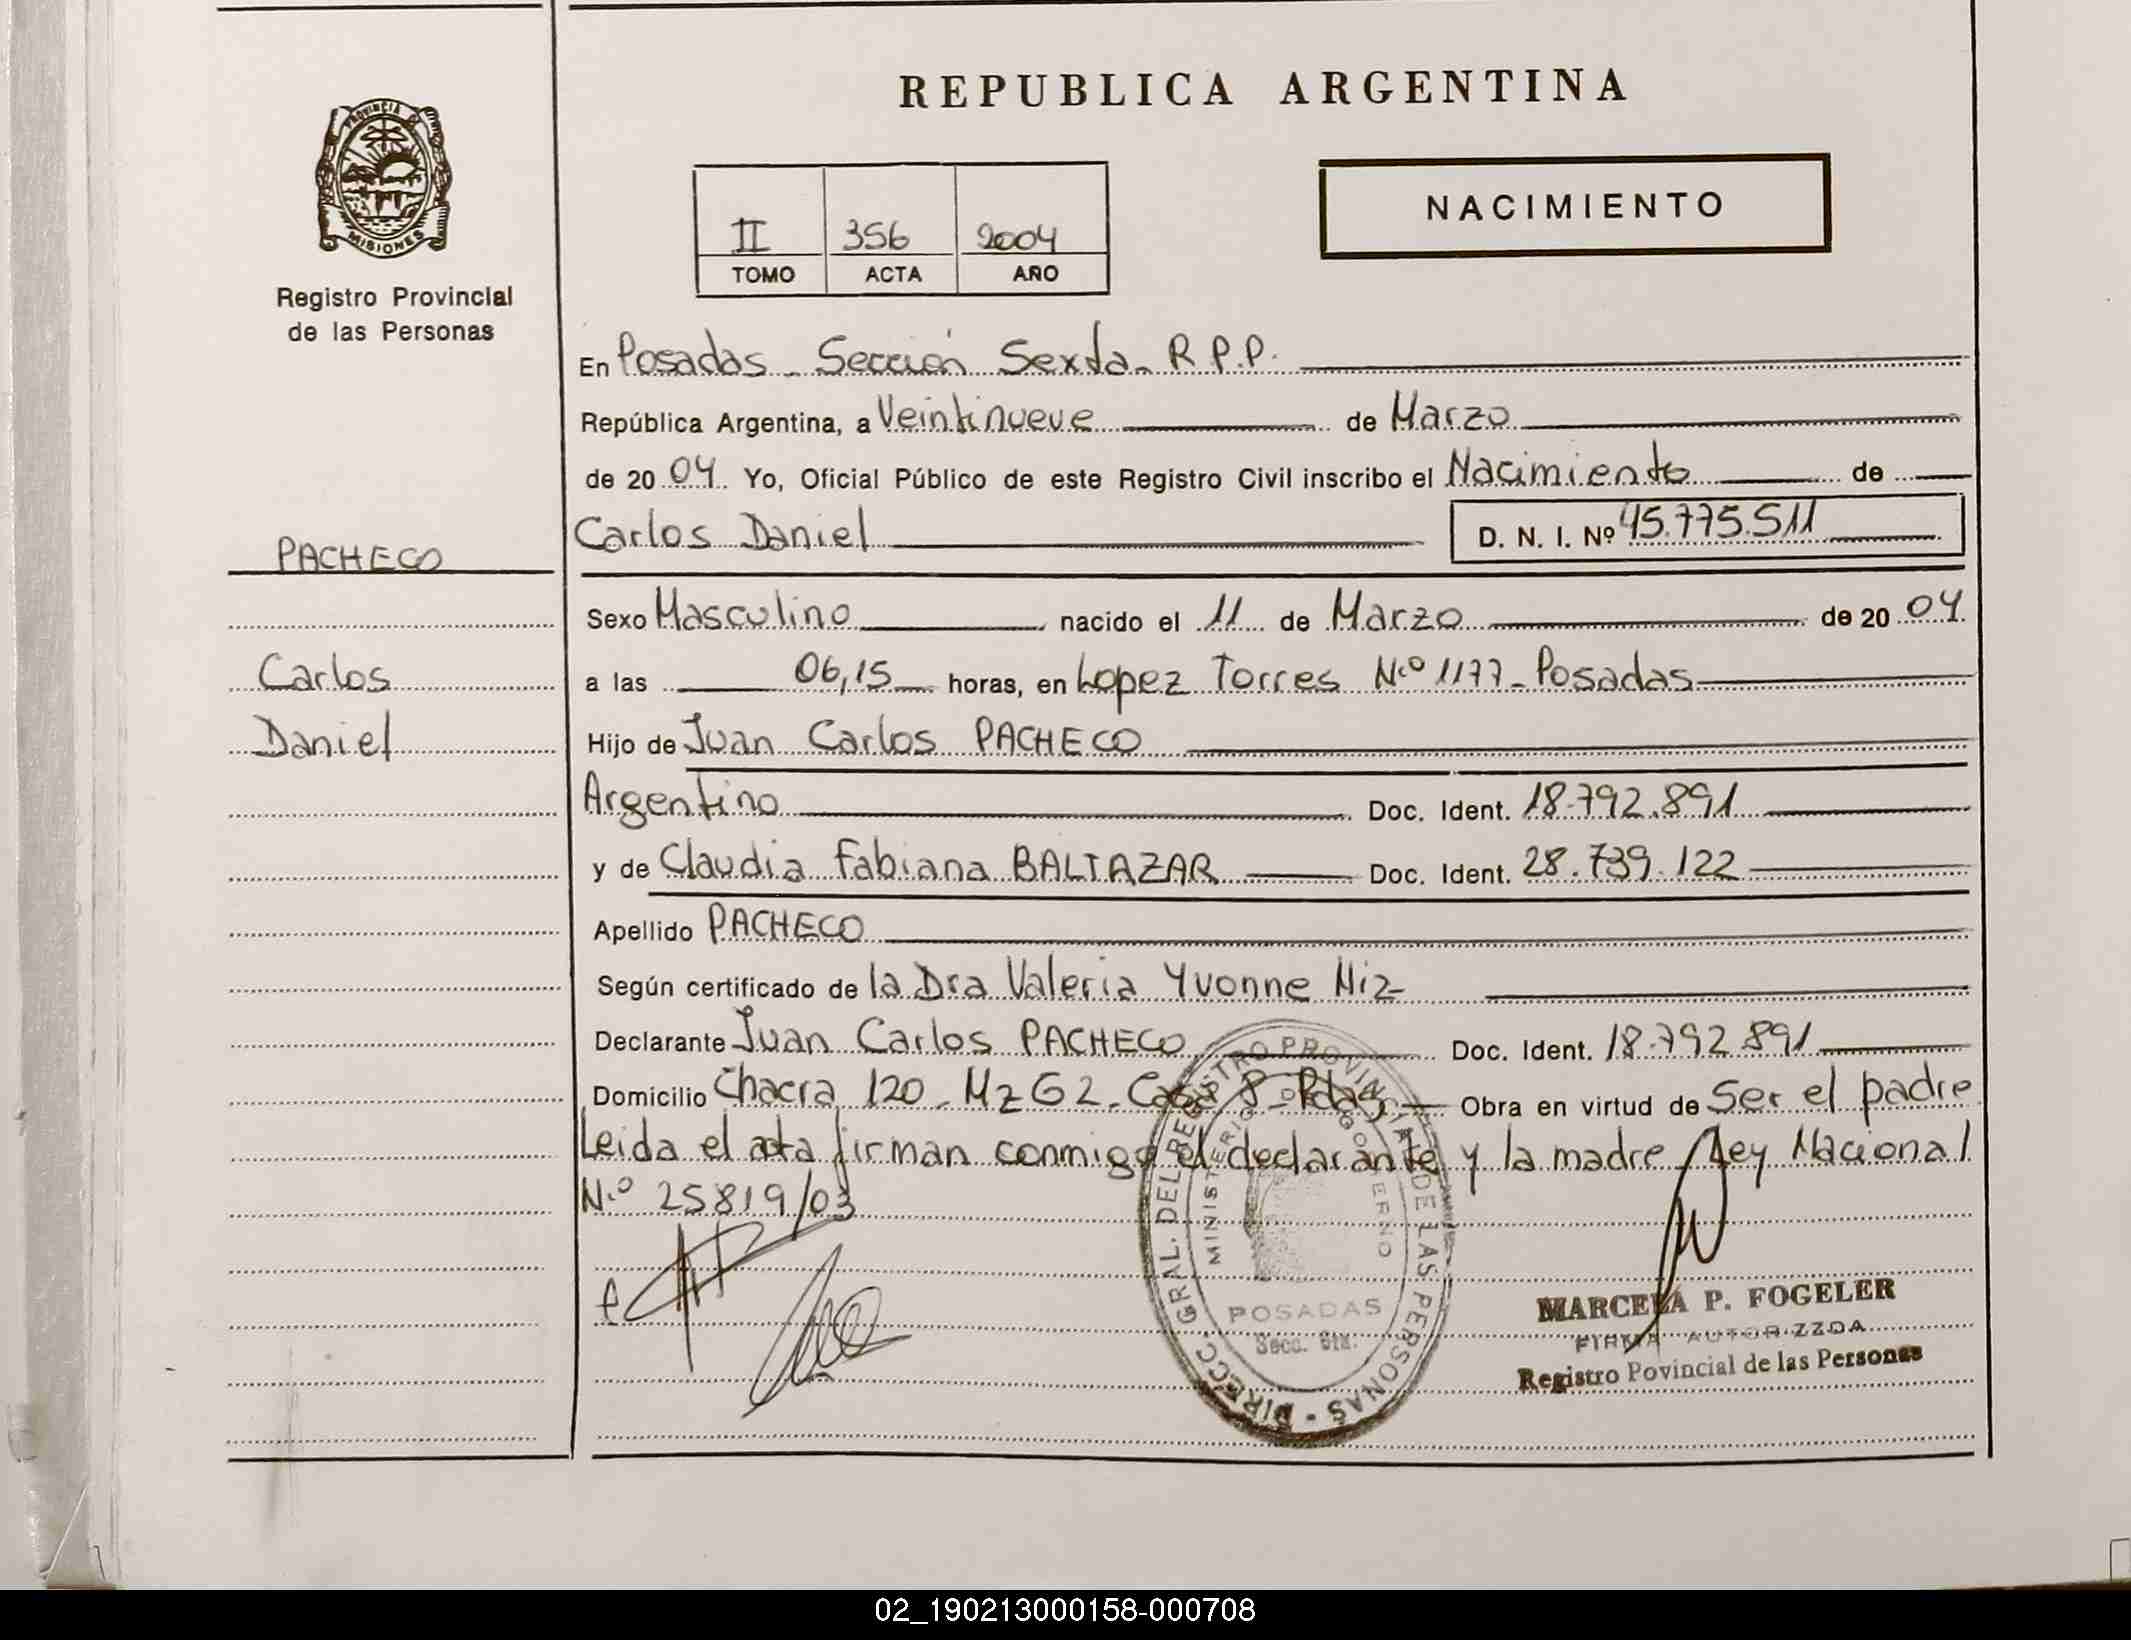 REPUBLICA ARGENTINA
PROVINCIA D
MISIONES
Registro Provincial
de las Personas
II 356 2004
TOMO ACTA AÑO
NACIMIENTO
En Posadas - Sección Sexta - R.P.P.
República Argentina, a Veintinueve de Marzo
de 20 04. Yo, Oficial Público de este Registro Civil inscribo el Nacimiento de
PACHECO
Carlos Daniel D. N. I. Nº 45.775.511
Sexo Masculino nacido el 11 de Marzo de 20 04
Carlos
a las 06,15 horas, en Lopez Torres N.º 1177 - Posadas
Daniel
Hijo de Juan Carlos PACHECO
Argentino Doc. Ident. 18.792.891
y de Claudia Fabiana BALTAZAR Doc. Ident. 28.739.122
Apellido PACHECO
Según certificado de la Dra Valeria Yvonne Niz
Declarante Juan Carlos PACHECO Doc. Ident. 18.792.891
Domicilio Chacra 120 - Mz G2 - Casa 8 - Pdas, Obra en virtud de Ser el padre
Leida el acta firman conmigo el declarante y la madre Ley Nacional
N.º 25819/03
DIRECC. GRAL. DEL REGISTRO PROVINCIAL DE LAS PERSONAS
MINISTERIO DE GOBIERNO
POSADAS
Secc. 6ta.
MARCELA P. FOGELER
FIRMA AUTORIZZDA
Registro Povincial de las Personas
02_190213000158-000708